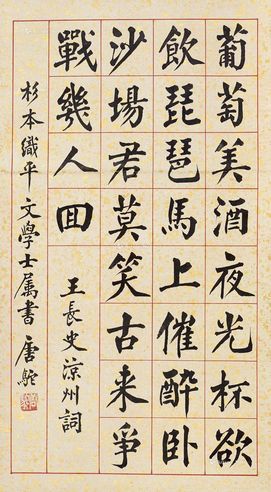 葡萄美酒夜光杯欲
飲琵琶馬上催醉卧
沙場君莫笑古来爭
戰幾人回
王長史涼州詞
杉本織平文學士属書 唐駝